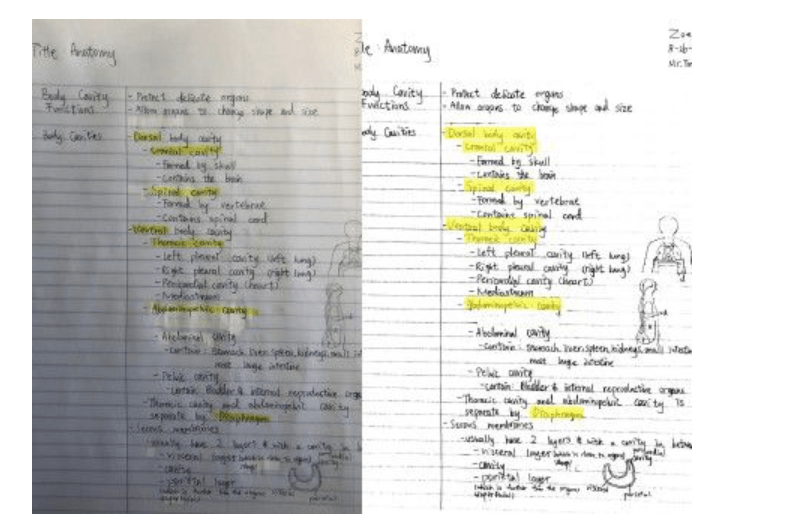 Title Anatomy
Body Cavity Functions
- Protect delicate organs
- Allow organs to change shape and size
Body Cavities
- Dorsal body cavity
- Cranial cavity
- Formed by skull
- Contains the brain
- Spinal cavity
- Formed by vertebrae
- Contains spinal cord
- Ventral body cavity
- Thoracic cavity
- Left pleural cavity (left lung)
- Right pleural cavity (right lung)
- Pericardial cavity (heart)
- Mediastinum
- Abdominopelvic cavity
- Abdominal cavity
- contain: stomach, liver, spleen, kidneys, small
most large intestine
- Pelvic cavity
- contain: Bladder & internal reproductive
- Thoracic cavity and abdominopelvic cavity
separate by Diaphragm
- Serous membranes
- usually have 2 layers & with a cavity in
- visceral layer
- cavity
- parietal layer
le Anatomy
Zoe
8-26-
Mr.
ody Cavity
Functions
- Protect delicate organs
- Allow organs to change shape and size
ody Cavities
- Dorsal body cavity
- Cranial cavity
- Formed by skull
- Contains the brain
- Spinal cavity
- Formed by vertebrae
- Contains spinal cord
- Ventral body cavity
- Thoracic cavity
- Left pleural cavity (left lung)
- Right pleural cavity (right lung)
- Pericardial cavity (heart)
- Mediastinum
- Abdominopelvic cavity
- Abdominal cavity
- contain: stomach, liver, spleen, kidneys, small intestine
most large intestine
- Pelvic cavity
- contain: Bladder & internal reproductive organs
- Thoracic cavity and abdominopelvic cavity is
separate by Diaphragm
- Serous membranes
- usually have 2 layers & with a cavity in betwe
- visceral layer
- cavity
- parietal layer